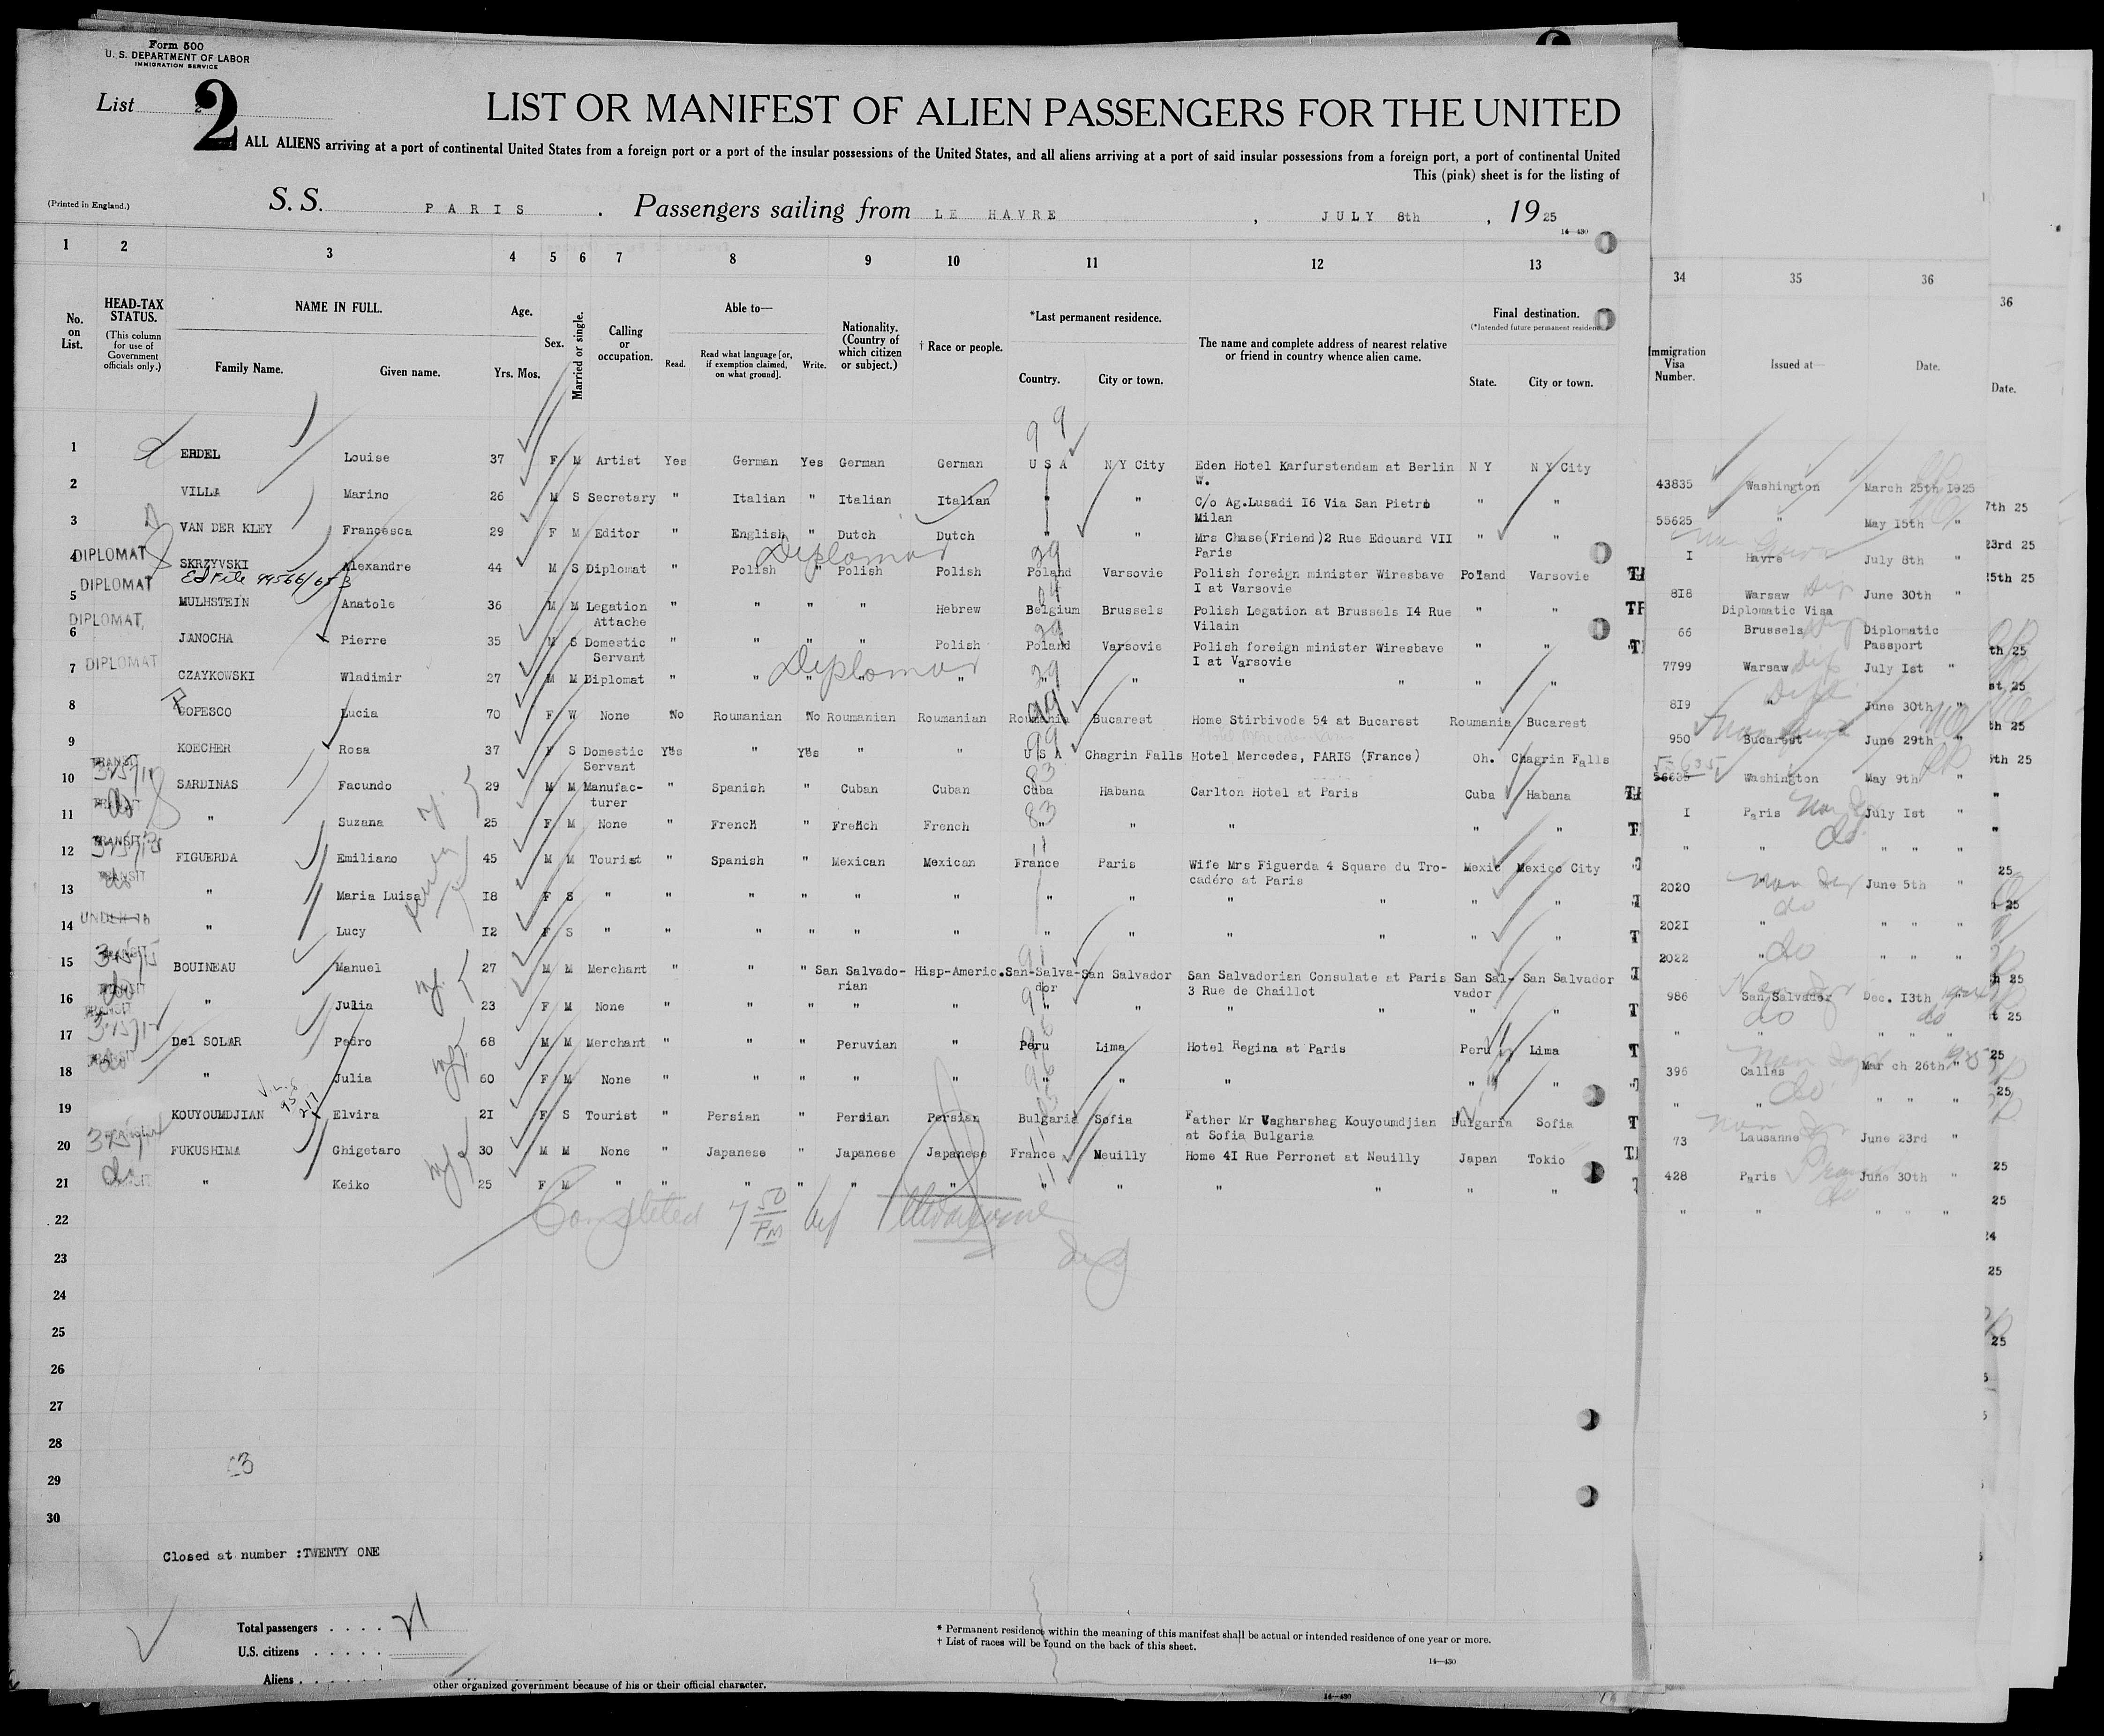 Form 500
U. S. DEPARTMENT OF LABOR
IMMIGRATION SERVICE
List 2
2
LIST OR MANIFEST OF ALIEN PASSENGERS FOR THE UNITED
ALL ALIENS arriving at a port of continental United States from a foreign port or a port of the insular possessions of the United States, and all aliens arriving at a port of said insular possessions from a foreign port, a port of continental United
This (pink) sheet is for the listing of
(Printed in England.)
S. S. PARIS . Passengers sailing from LE HAVRE , JULY 8th , 19 25
14—430
1 2 3 4 5 6 7 8 9 10 11 12 13 34 35 36
36
No. on List.
HEAD-TAX STATUS.
(This column for use of Government officials only.)
NAME IN FULL.
Family Name. Given name.
Age.
Yrs. Mos.
Sex.
Married or single.
Calling or occupation.
Able to—
Read. Read what language [or, if exemption claimed, on what ground]. Write.
Nationality. (Country of which citizen or subject.)
† Race or people.
*Last permanent residence.
Country. City or town.
The name and complete address of nearest relative or friend in country whence alien came.
Final destination.
(*Intended future permanent residence)
State. City or town.
Immigration Visa Number.
Issued at—
Date.
Date.
1 ERDEL Louise 37 F M Artist Yes German Yes German German U S A N Y City Eden Hotel Karfurstendam at Berlin W. N Y N Y City 43835 Washington March 25th 1925
2 VILLA Marino 26 M S Secretary " Italian " Italian Italian " " C/o Ag.Lusadi I6 Via San Pietro Milan " " 55625 " May 15th "
3 VAN DER KLEY Francesca 29 F M Editor " English " Dutch Dutch " " Mrs Chase(Friend)2 Rue Edouard VII Paris " " I Havre July 8th "
4 DIPLOMAT SKRZYVSKI Alexandre 44 M S Diplomat " Polish " Polish Polish Poland Varsovie Polish foreign minister Wiresbave I at Varsovie Poland Varsovie 818 Warsaw June 30th "
Diplomatic Visa
Diplomat
Ed File 99566/65 B
5 DIPLOMAT MULHSTEIN Anatole 36 M M Legation Attache " " " " Hebrew Belgium Brussels Polish Legation at Brussels I4 Rue Vilain " " 66 Brussels Diplomatic Passport
6 DIPLOMAT JANOCHA Pierre 35 M S Domestic Servant " " " " Polish Poland Varsovie Polish foreign minister Wiresbave I at Varsovie " " 7799 Warsaw July Ist "
7 DIPLOMAT CZAYKOWSKI Wladimir 27 M M Diplomat " " " " " " " " " " " 819 " June 30th "
Diplomat
8 GOPESCO Lucia 70 F W None No Roumanian No Roumanian Roumanian Roumania Bucarest Home Stirbivode 54 at Bucarest Roumania Bucarest 950 Bucarest June 29th "
9 KOECHER Rosa 37 F S Domestic Servant Yes " Yes " " U S A Chagrin Falls Hotel Mercedes, PARIS (France) Oh. Chagrin Falls 56635 Washington May 9th "
10 TRANSIT SARDINAS Facundo 29 M M Manufacturer " Spanish " Cuban Cuban Cuba Habana Carlton Hotel at Paris Cuba Habana I Paris July Ist "
11 " Suzana 25 F M None " French " French French " " " " " " " " " "
12 TRANSIT FIGUERDA Emiliano 45 M M Tourist " Spanish " Mexican Mexican France Paris Wife Mrs Figuerda 4 Square du Trocadéro at Paris Mexic Mexico City 2020 " June 5th "
13 TRANSIT " Maria Luisa I8 F S " " " " " " " " " " " " 202I " " " "
14 " Lucy I2 F S " " " " " " " " " " " " 2022 " " " "
15 TRANSIT BOUINEAU Manuel 27 M M Merchant " " " San Salvado-rian Hisp-Americ. San-Salva-dor San Salvador San Salvadorian Consulate at Paris 3 Rue de Chaillot San Sal-vador San Salvador 986 San Salvador Dec. I3th
16 TRANSIT " Julia 23 F M None " " " " " " " " " " " " " " " "
17 TRANSIT Del SOLAR Pedro 68 M M Merchant " " " Peruvian " Peru Lima Hotel Regina at Paris Peru Lima 396 Callas March 26th "
18 TRANSIT " Julia 60 F M None " " " " " " " " " " " " " " "
19 KOUYOUMDJIAN Elvira 2I F S Tourist " Persian " Persian Persian Bulgaria Sofia Father Mr Vagharshag Kouyoumdjian at Sofia Bulgaria Bulgaria Sofia 73 Lausanne June 23rd "
20 FUKUSHIMA Ghigetaro 30 M M None " Japanese " Japanese Japanese France Neuilly Home 4I Rue Perronet at Neuilly Japan Tokio 428 Paris June 30th "
21 " Keiko 25 F M " " " " " " " " " " " " " " " " "
22
Completed 7 50 PM by
23
24
25
26
27
28
29
30
Closed at number :TWENTY ONE
Total passengers . . . . 21
U.S. citizens . . . . .
Aliens . . . . . .
* Permanent residence within the meaning of this manifest shall be actual or intended residence of one year or more.
† List of races will be found on the back of this sheet.
14—430
other organized government because of his or their official character.
14—430